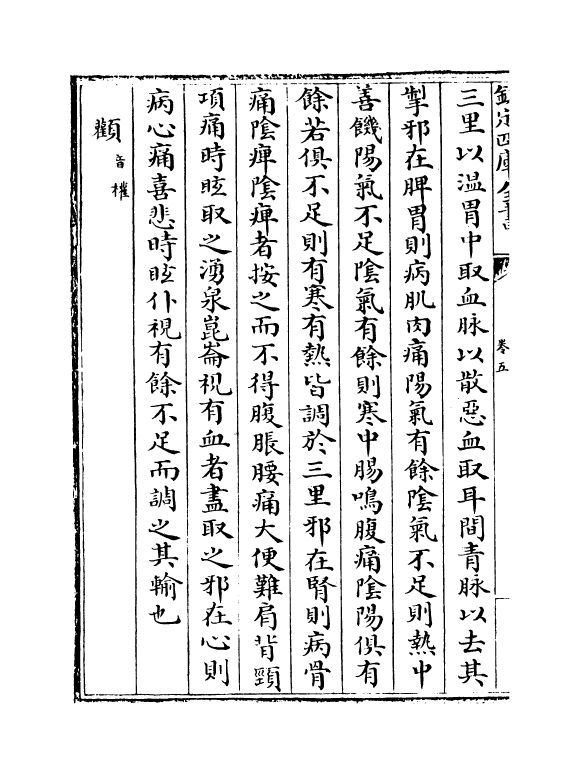 欽定四庫全書
卷五
三里以温胃中取血脉以散惡血取耳間青脉以去其
掣邪在脾胃則病肌肉痛陽氣有餘陰氣不足則熱中
善饑陽氣不足陰氣有餘則寒中腸鳴腹痛陰陽俱有
餘若俱不足則有寒有熱皆調於三里邪在腎則病骨
痛陰痺陰痺者按之而不得腹脹腰痛大便難肩背頸
項痛時眩取之湧泉崑崙視有血者盡取之邪在心則
病心痛喜悲時眩仆視有餘不足而調之其輸也
顴音權